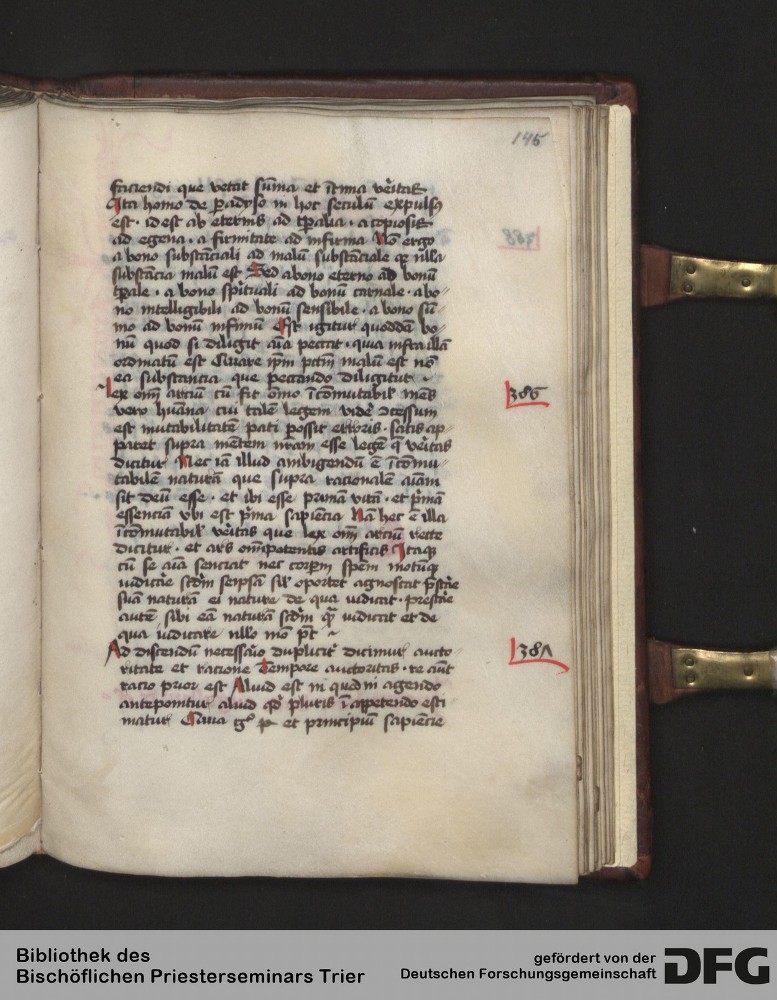 145
faciendi que vetat sūma et ītima vēitas
Ita homo de ꝑadyso in hoc seculū expulsꝰ
est · id est ab eternis ad tꝑalia · a copiosis
ad egena · a firmitate ad infirma Nō ergo
a bono substāciali ad malū substāciale qꝛ nulla
substācia malū est Sed a bono eterno ad bonū
tꝑale · a bono spūituali ad bonū carnale · a bo-
no intelligibili ad bonū sensibile · a bono sū-
mo ad bonū infimū Est igitur quoddā bo-
nū quod si diligit aīa peccat · quia infra illā
ordinatū est Quare ipm̄ pctm̄ malū est nō
ea substancia que peccando diligitur
Lex om̄ arciū cū sit om̄o īcōmutabil mēs
vero hūana cui talē legem vidē ↄcessum
est mutabilitatē pati possit erroris · satis ap-
paret supra mētem nr̄am esse legē q̄ vēitas
dicitur Nec iā illud ambigendū ē īcōmu-
tabilē naturā que supra racionalē aīam
sit deū esse · et ibi esse primā vitā · et p̄mā
essenciā vbi est p̄ma sapiēcia Nā hec ē illa
īcōmutabil vēitas que lex om̄ arciū recte
dicitur · et ars om̄ipotentis artificis Itaqꝫ
cū se aīa senciat nec corpm̄ spēm motūqꝫ
iudicāe scdm̄ seipsā sil oportet agnoscat p̄stāe
suā naturā ei nature de qua iudicat · prestāe
autē sibi eā naturā scdm̄ quā iudicat et de
qua iudicare nullo mō pt
Ad discendū necessāio duplicit̄ dicimur aucto
ritate et racione Tempore auctoritas · re aūt
racio prior est Aliud est ni quod in agendo
anteponitur aliud qđ pluris ī appetendo esti
matur Quia g° et principiū sapiēcie
386
387
Bibliothek des
Bischöflichen Priesterseminars Trier
gefördert von der
Deutschen Forschungsgemeinschaft
DFG